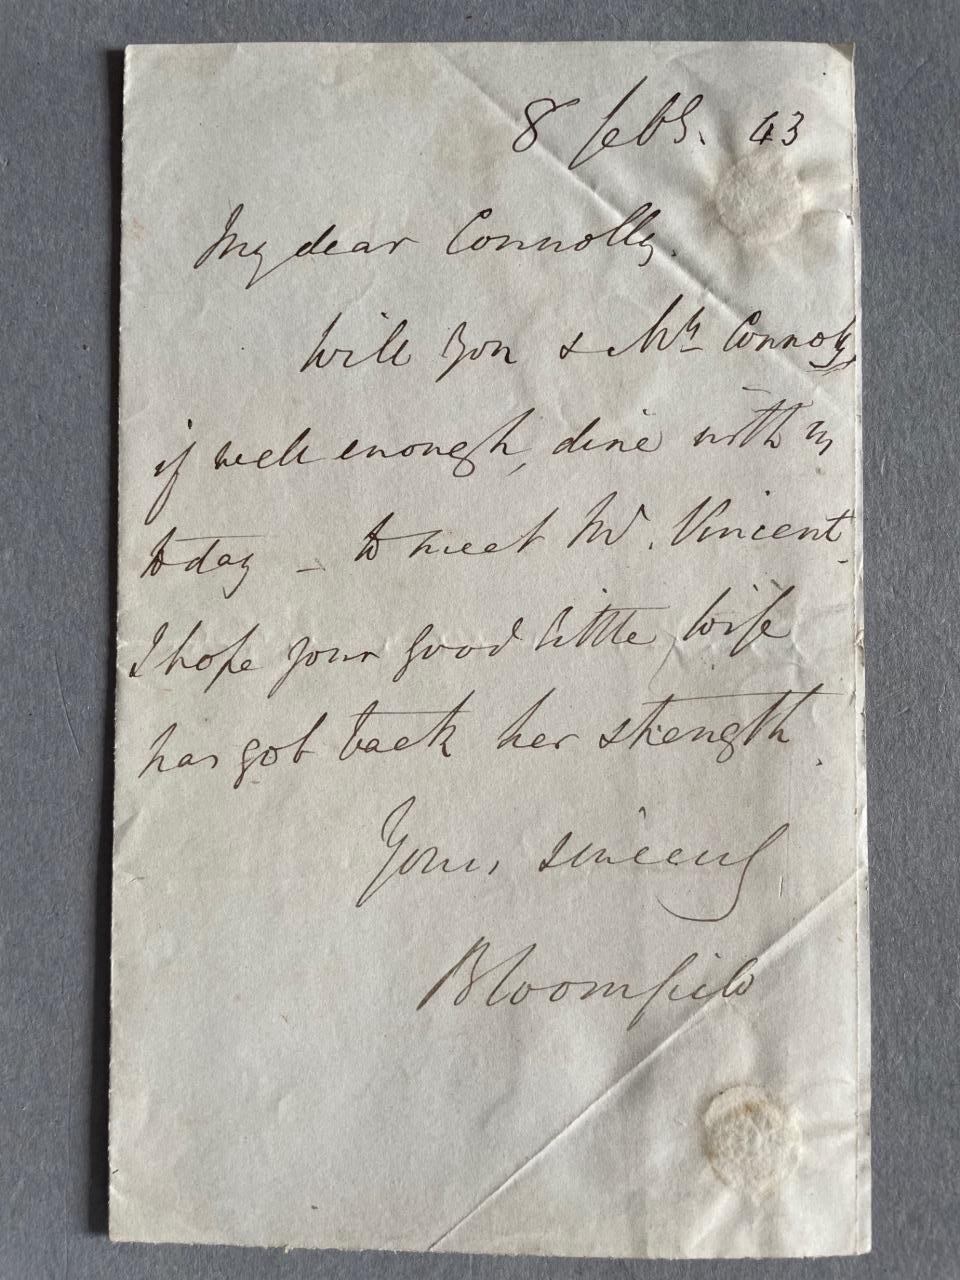 8 feby. 43
My dear Connolly.
Will you & Mrs Connolly,
if well enough, dine with us
today – to meet Mr. Vincent.
I hope your good little wife
has got back her strength.
Yours sincerely
Bloomfield